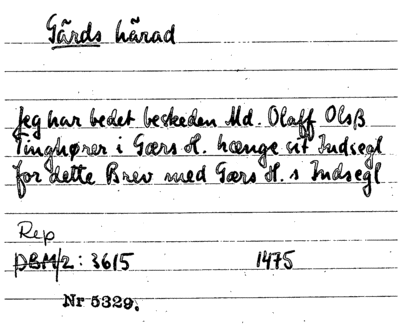 Gärds härad
Jeg har bedet beskeden Md. Olaff Olsß
Tinghører i Gærs H. hænge sit Indsegl
for dette Brev med Gærs H.s Indsegl
Rep
DBM/2: 3615 1475
Nr 5329.